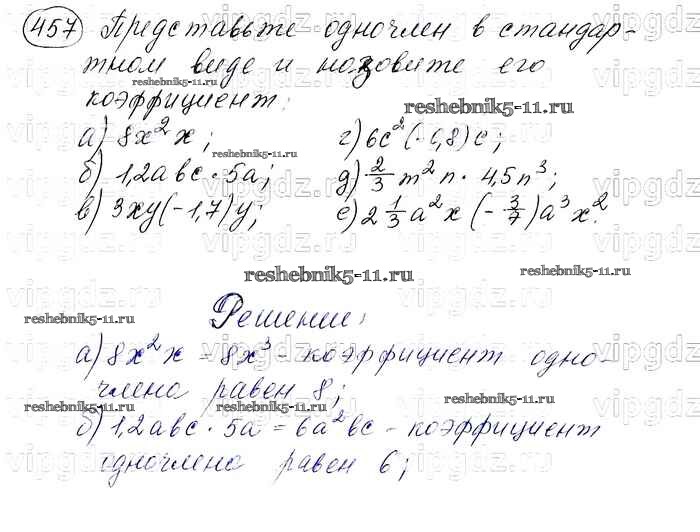 457 Представьте одночлен в стандар-
тном виде и назовите его
коэффициент:
а) 8x²x; г) 6c²(-0,8)c;
б) 1,2abc · 5a; д) 2/3 m²n · 4,5n³;
в) 3xy(-1,7)y; е) 2 1/3 a²x (-3/7)a³x².
Решение:
а) 8x²x = 8x³ - коэффициент одно-
члена равен 8;
б) 1,2abc · 5a = 6a²bc - коэффициент
одночлена равен 6;
reshebnik5-11.ru
vipgdz